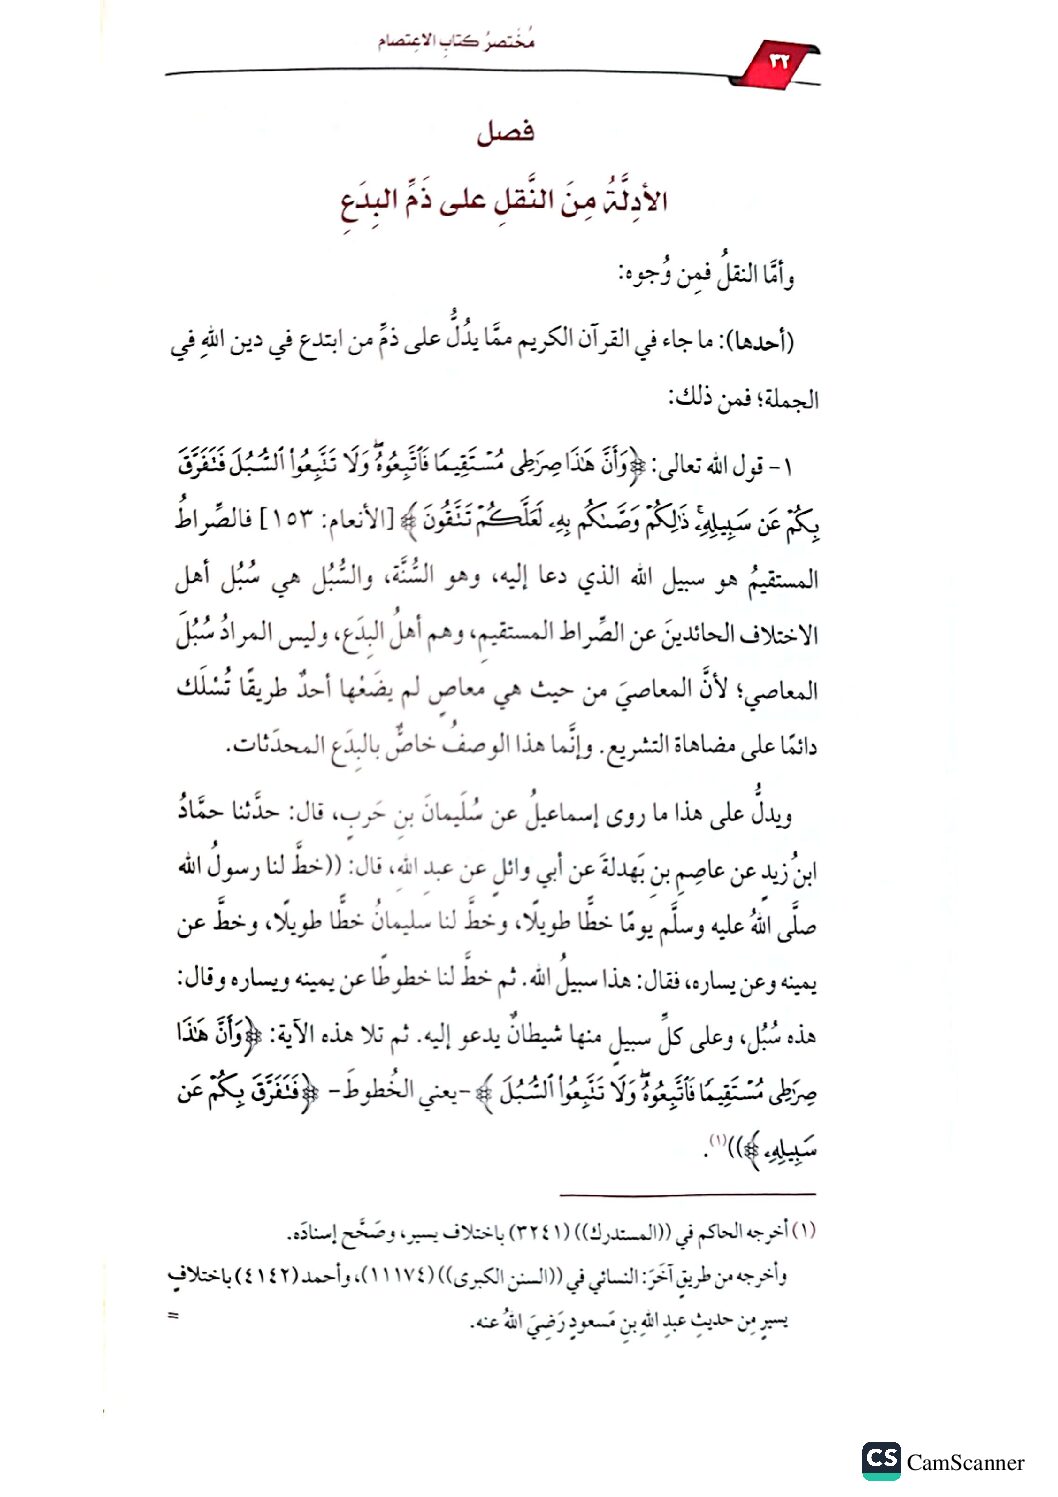 مُخْتصرُ كتابِ الاعتِصام
٣٢
فصل
الأدِلَّةُ مِنَ النَّقلِ على ذَمِّ البِدَعِ
وأمَّا النقلُ فمِن وُجوه:
(أحدها): ما جاء في القرآن الكريم ممَّا يدُلُّ على ذمِّ من ابتدع في دين اللهِ في
الجملة؛ فمن ذلك:
١- قول الله تعالى: ﴿وَأَنَّ هَٰذَا صِرَٰطِى مُسْتَقِيمًا فَٱتَّبِعُوهُ ۖ وَلَا تَتَّبِعُوا۟ ٱلسُّبُلَ فَتَفَرَّقَ
بِكُمْ عَن سَبِيلِهِۦ ۚ ذَٰلِكُمْ وَصَّىٰكُم بِهِۦ لَعَلَّكُمْ تَتَّقُونَ﴾ [الأنعام: ١٥٣] فالصِّراطُ
المستقيمُ هو سبيل الله الذي دعا إليه، وهو السُّنَّة، والسُّبُل هي سُبُل أهل
الاختلاف الحائدينَ عن الصِّراط المستقيمِ، وهم أهلُ البِدَع، وليس المرادُ سُبُلَ
المعاصي؛ لأنَّ المعاصيَ من حيث هي معاصٍ لم يضَعْها أحدٌ طريقًا تُسْلَك
دائمًا على مضاهاة التشريع. وإنَّما هذا الوصفُ خاصٌّ بالبِدَع المحدَثات.
ويدلُّ على هذا ما روى إسماعيلُ عن سُلَيمانَ بنِ حَربٍ، قال: حدَّثنا حمَّادُ
ابنُ زيدٍ عن عاصِمِ بنِ بَهدلةَ عن أبي وائلٍ عن عبدِ اللهِ، قال: ((خطَّ لنا رسولُ الله
صلَّى اللهُ عليه وسلَّم يومًا خطًّا طويلًا، وخطَّ لنا سليمانُ خطًّا طويلًا، وخطَّ عن
يمينه وعن يساره، فقال: هذا سبيلُ الله. ثم خطَّ لنا خطوطًا عن يمينه ويساره وقال:
هذه سُبُل، وعلى كلِّ سبيلٍ منها شيطانٌ يدعو إليه. ثم تلا هذه الآية: ﴿وَأَنَّ هَٰذَا
صِرَٰطِى مُسْتَقِيمًا فَٱتَّبِعُوهُ ۖ وَلَا تَتَّبِعُوا۟ ٱلسُّبُلَ﴾ -يعني الخُطوطَ- ﴿فَتَفَرَّقَ بِكُمْ عَن
سَبِيلِهِۦ﴾))(١).
(١) أخرجه الحاكم في ((المستدرك)) (٣٢٤١) باختلاف يسير، وصَحَّح إسنادَه.
وأخرجه من طريقٍ آخَرَ: النسائي في ((السنن الكبرى)) (١١١٧٤)، وأحمد (٤١٤٢) باختلافٍ
يسيرٍ مِن حديثِ عبدِ اللهِ بنِ مَسعودٍ رَضِيَ اللهُ عنه. =
CS CamScanner